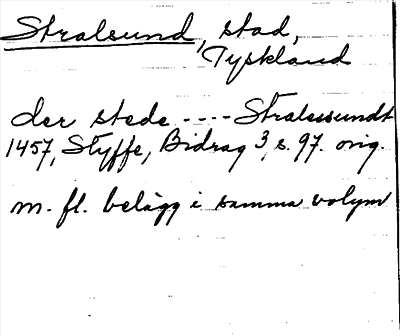 Stralsund, stad,
Tyskland
der stede ---- Stralessundt
1457, Styffe, Bidrag 3, s. 97. orig.
m. fl. belägg i samma volym